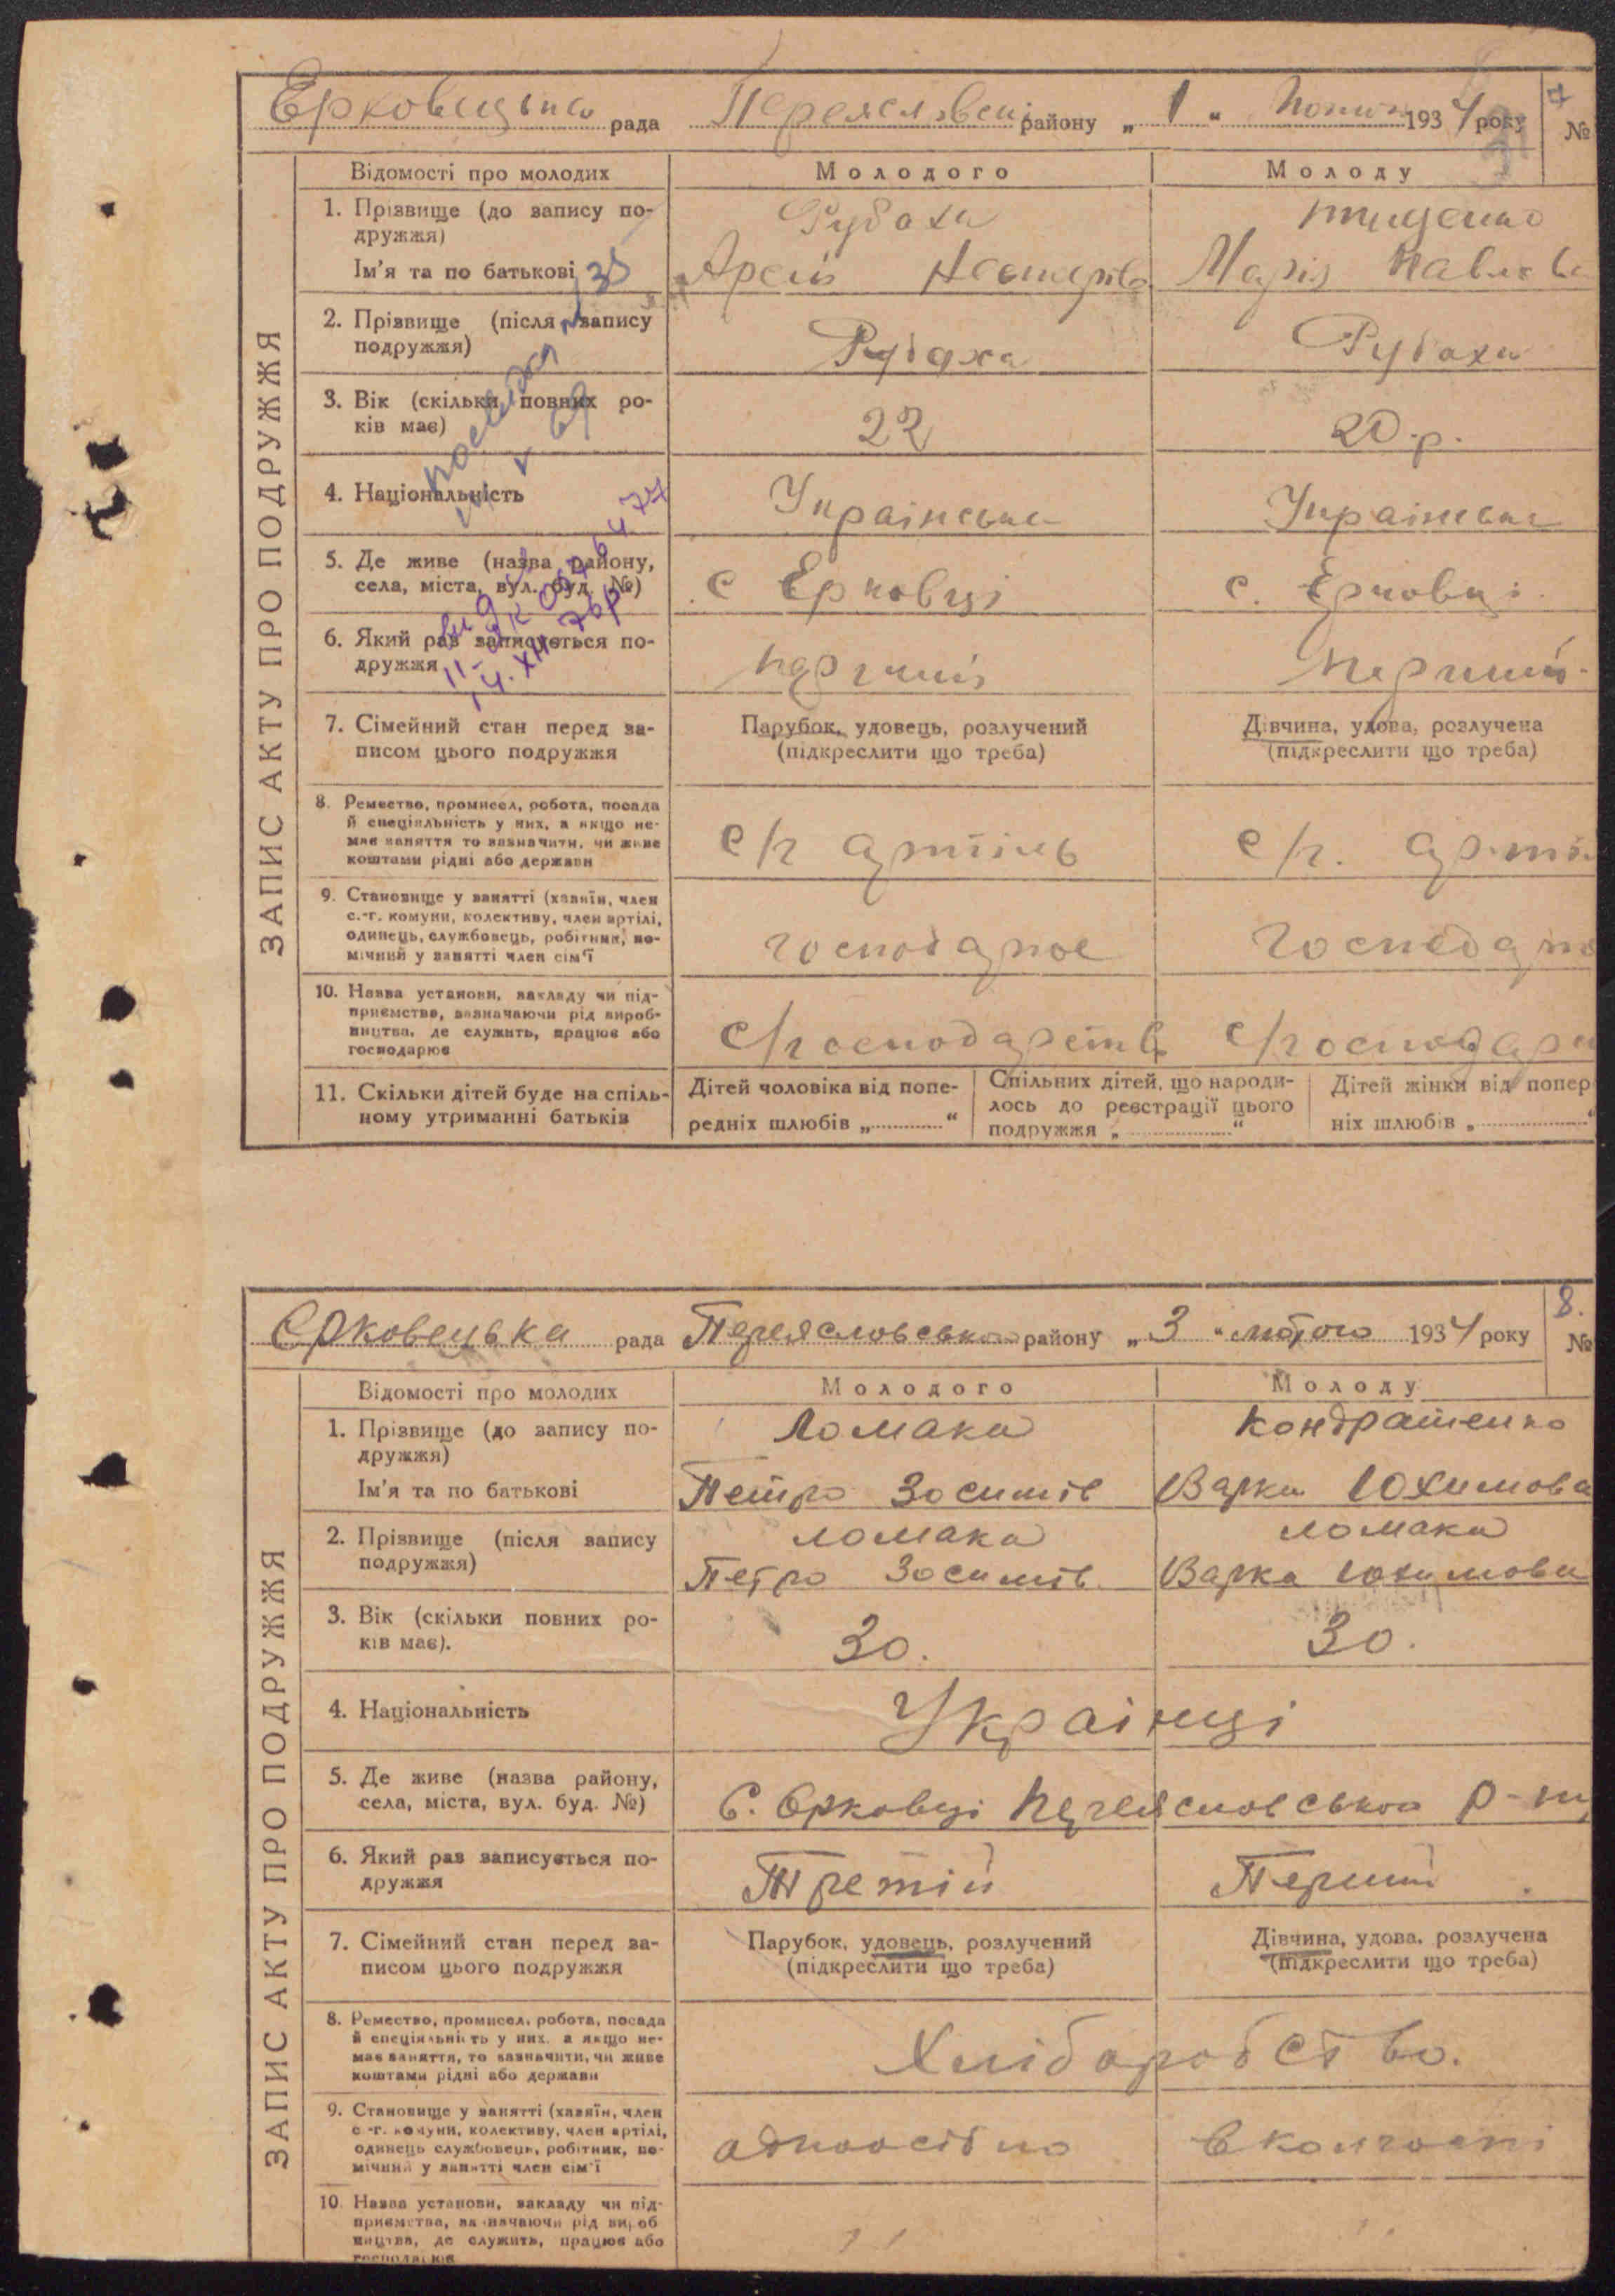 Ерковецька рада Переяслівськ району „ 1 “ 1934 року
7
№
ЗАПИС АКТУ ПРО ПОДРУЖЖЯ
Відомості про молодих Молодого Молоду
1. Прізвище (до запису по-
дружжя)
Рубаха
Ім'я та по батькові
Марія Павлова
2. Прізвище (після запису
подружжя)
Рубаха Рубаха
3. Вік (скільки повних ро-
ків має)
22 20 р.
4. Національність
Українська Українська
5. Де живе (назва району,
села, міста, вул. буд. №)
с Ерковці с. Ерковці
6. Який раз записується по-
дружжя
первий первий
7. Сімейний стан перед за-
писом цього подружжя
Парубок, удовець, розлучений
(підкреслити що треба)
Дівчина, удова, розлучена
(підкреслити що треба)
8. Ремество, промисел, робота, посада
й спеціяльність у них, а якщо не-
має заняття то зазначити, чи живе
коштами рідні або держави
с/г артіль с/г. арті
9. Становище у занятті (хазяїн, член
с.-г. комуни, колективу, член артілі,
одинець, службовець, робітник, по-
мічний у занятті член сім'ї
10. Назва установи, закладу чи під-
приємства, зазначаючи рід вироб-
ництва, де служить, працює або
господарює
11. Скільки дітей буде на спіль-
ному утриманні батьків
Дітей чоловіка від попе-
редніх шлюбів „ “
Спільних дітей, що народи-
лось до реєстрації цього
подружжя „ “
Дітей жінки від попер
ніх шлюбів „ “
Єрковецька рада Переясловського району „ 3 “ лютого 1934 року
8.
№
ЗАПИС АКТУ ПРО ПОДРУЖЖЯ
Відомості про молодих Молодого Молоду
1. Прізвище (до запису по-
дружжя)
Ломака Кондратенко
Ім'я та по батькові
Петро Зосимів Варка Юхимова
2. Прізвище (після запису
подружжя)
Ломака Ломака
Петро Зосимів Варка Юхимова
3. Вік (скільки повних ро-
ків має).
30. 30.
4. Національність
Українці
5. Де живе (назва району,
села, міста, вул. буд. №)
С. Єрковці Переясловського р-ну
6. Який раз записується по-
дружжя
Третій Перший
7. Сімейний стан перед за-
писом цього подружжя
Парубок, удовець, розлучений
(підкреслити що треба)
Дівчина, удова, розлучена
(підкреслити що треба)
8. Ремество, промисел, робота, посада
й спеціяльність у них, а якщо не-
має заняття, то зазначити, чи живе
коштами рідні або держави
Хліборобство.
9. Становище у занятті (хазяїн, член
с.-г. комуни, колективу, член артілі,
одинець службовець, робітник, по-
мічний у занятті член сім'ї
одноосібно в колгоспі
10. Назва установи, закладу чи під-
приємства, зазначаючи рід вироб
ництва, де служить, працює або
господарює